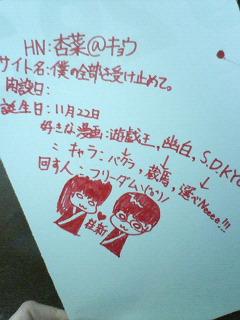 HN:杏菜@キョウ
サイト名:僕の全部を受け止めて。
開設日:
誕生日:11月22日
好きな漫画:遊戯王,幽白,S.D.KYO
〃 キャラ:バクラ,蔵馬,選べNeeeo!!!
回す人:フリーダム